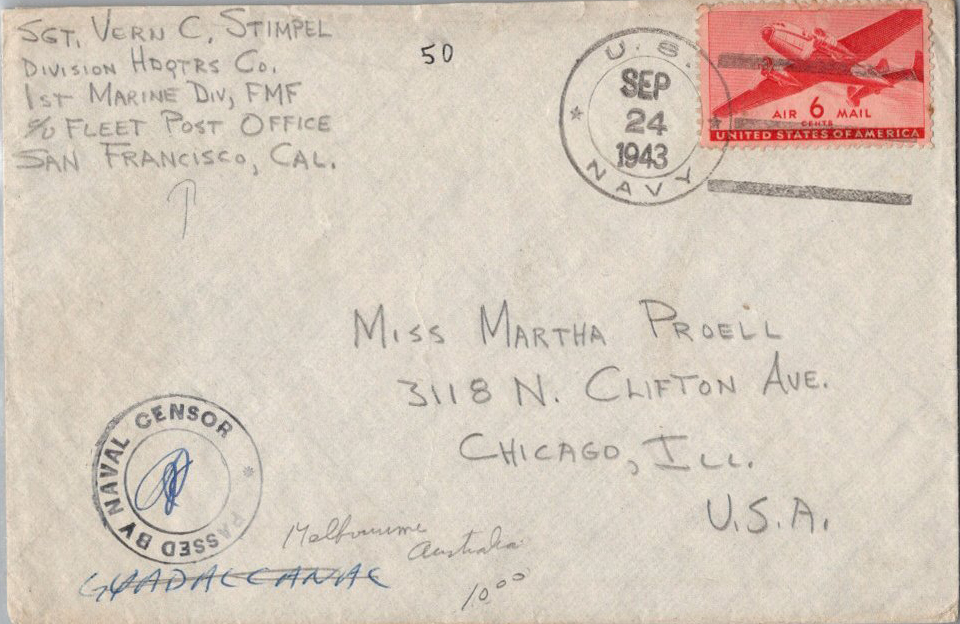 SGT. VERN C. STIMPEL
DIVISION HDQTRS CO.
1ST MARINE DIV, FMF
C/O FLEET POST OFFICE
SAN FRANCISCO, CAL.
50
U.S. NAVY
SEP
24
1943
AIR 6 MAIL
CENTS
UNITED STATES OF AMERICA
MISS MARTHA PROELL
3118 N. CLIFTON AVE.
CHICAGO, ILL.
U.S.A.
PASSED BY NAVAL CENSOR
Melbourne
Australia
GUADALCANAL
10.00